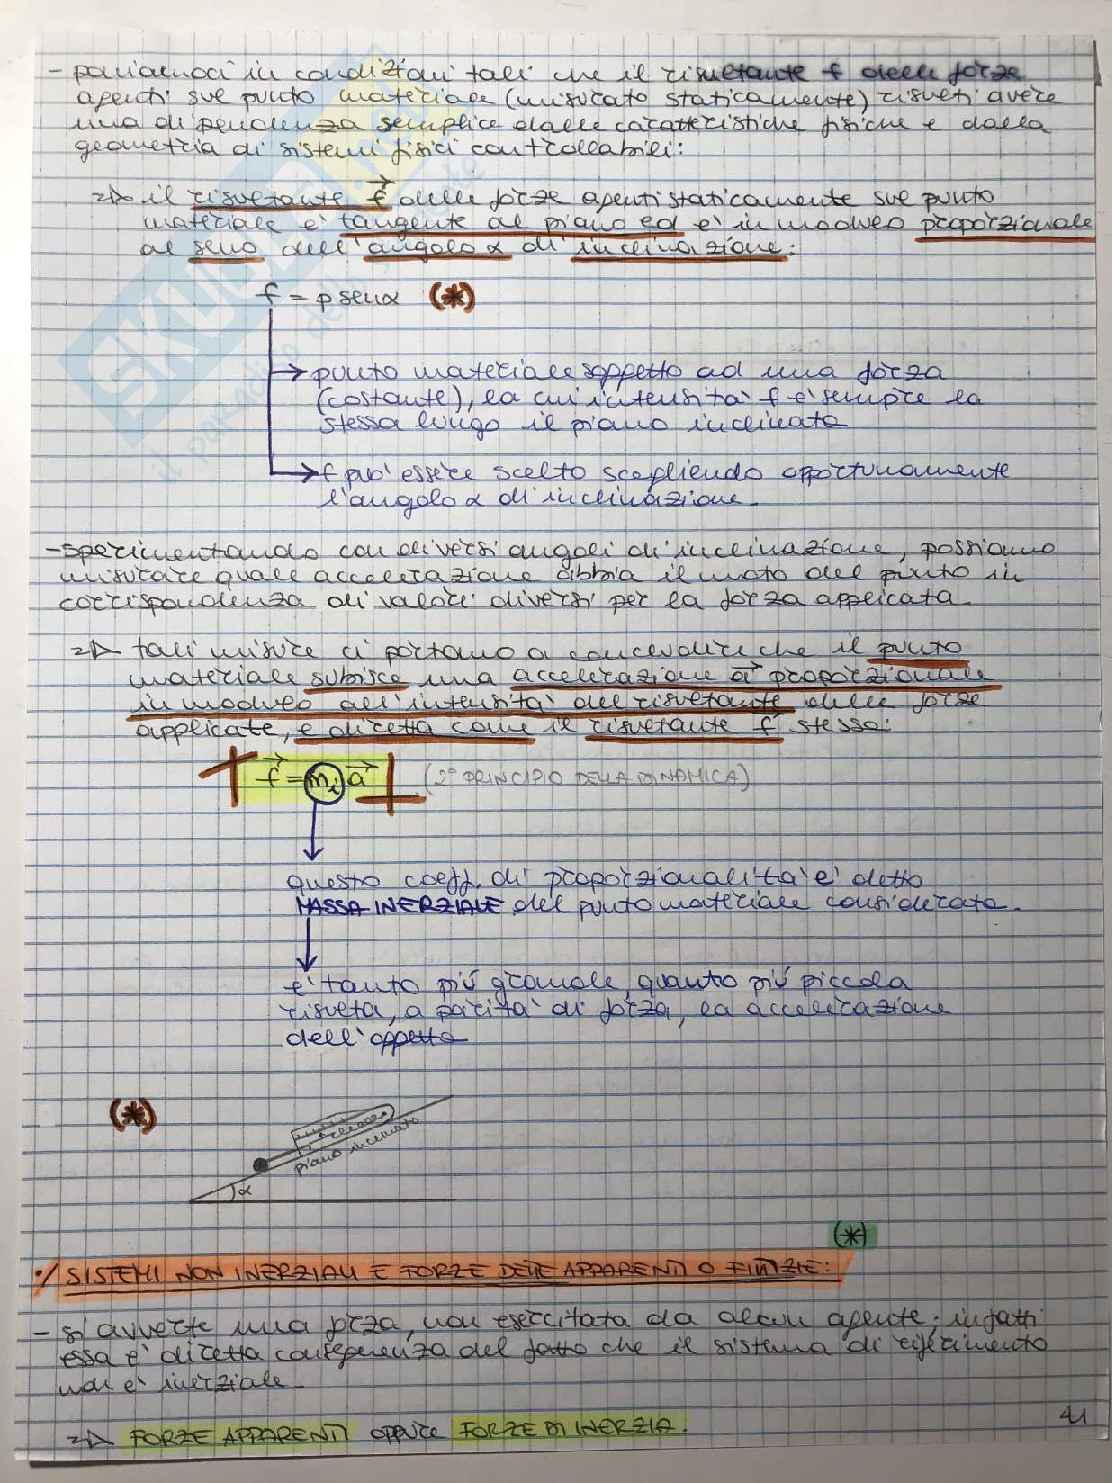 - poniamoci in condizioni tali che il risultante f delle forze
agenti sul punto materiale (misurato staticamente) risulti avere
una dipendenza semplice dalle caratteristiche fisiche e dalla
geometria di sistemi fisici controllabili:
=> il risultante f delle forze agenti staticamente sul punto
materiale e' tangente al piano ed e' in modulo proporzionale
al seno dell'angolo α di inclinazione:
f = p senα (*)
punto materiale soggetto ad una forza
(costante), la cui intensita' f e' sempre la
stessa lungo il piano inclinato
f puo' essere scelto scegliendo opportunamente
l'angolo α di inclinazione.
- sperimentando con diversi angoli di inclinazione, possiamo
misurare quale accelerazione abbia il moto del punto in
corrispondenza di valori diversi per la forza applicata.
=> tali misure ci portano a concludere che il punto
materiale subisce una accelerazione a proporzionale
in modulo all'intensita' del risultante delle forze
applicate, e diretta come il risultante f stesso:
f = mi a (2° PRINCIPIO DELLA DINAMICA)
questo coeff. di proporzionalita' e' detto
MASSA INERZIALE del punto materiale considerato.
e' tanto più grande, quanto più piccola
risulta, a parita' di forza, la accelerazione
dell'oggetto
(*)
piano inclinato
α
(*)
·/ SISTEMI NON INERZIALI E FORZE DETTE APPARENTI O FITTIZIE:
- si avverte una forza, non esercitata da alcun agente; infatti
essa e' diretta conseguenza del fatto che il sistema di riferimento
non e' inerziale.
=> FORZE APPARENTI oppure FORZE DI INERZIA.
41
SKUOLA
il paradiso dello studente